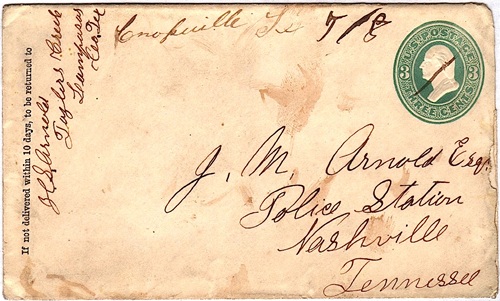 If not delivered within 10 days, to be returned to
J C S Arnold
Taylers Creek
Lampasas
Co Tex
7/8
U.S. POSTAGE
3 3
THREE CENTS
J. M. Arnold Esq.
Police Station
Nashville
Tennessee